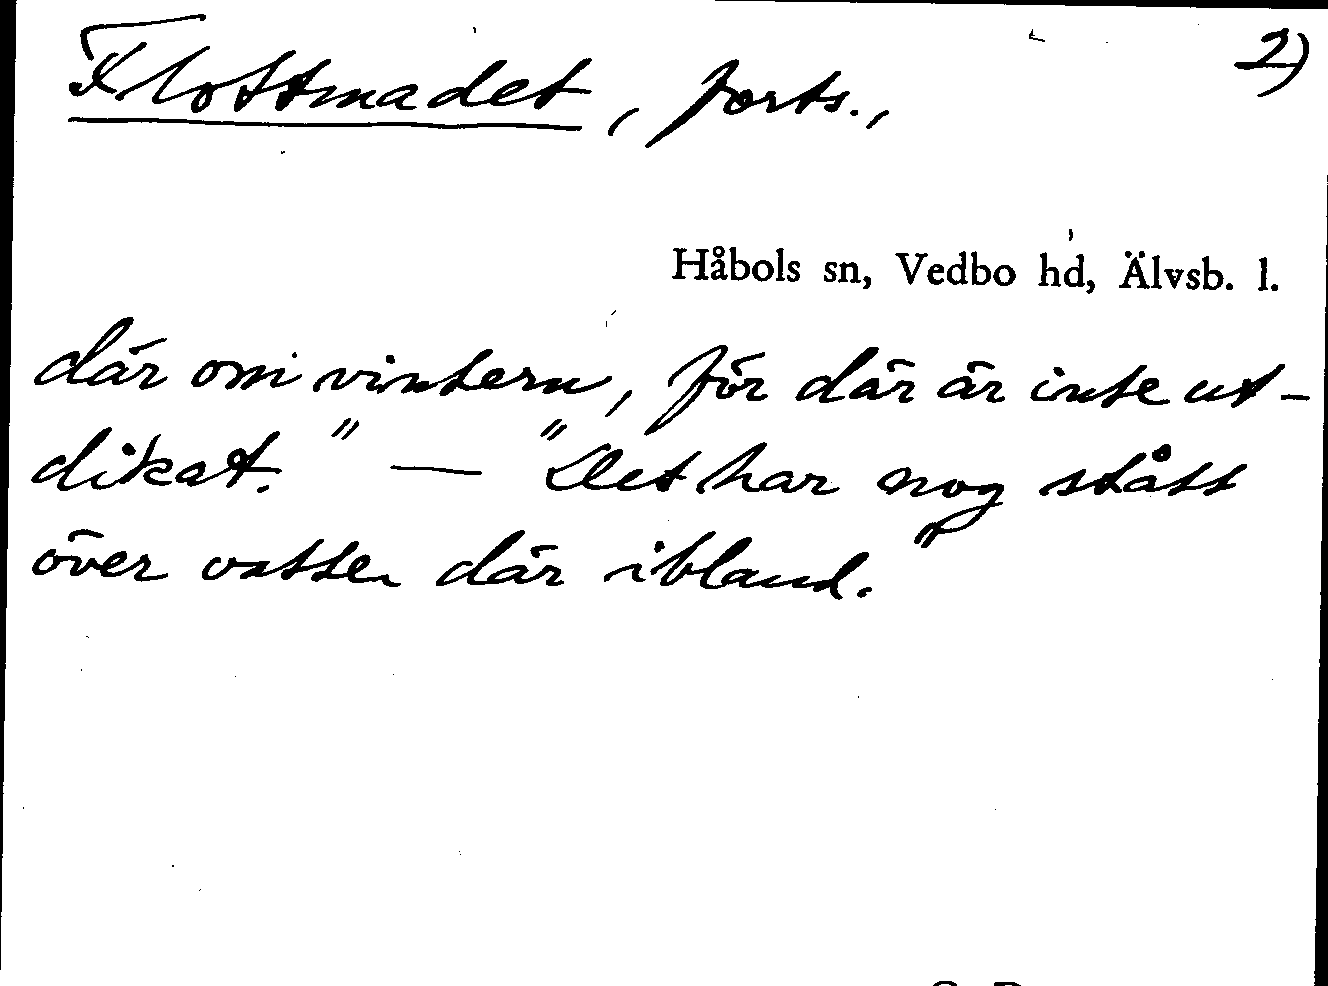 Flottmadet, forts., 2)
Håbols sn, Vedbo hd, Älvsb. l.
där om vintern, för där är inte ut-
dikat." — "Det har nog stått
över vatten där ibland."